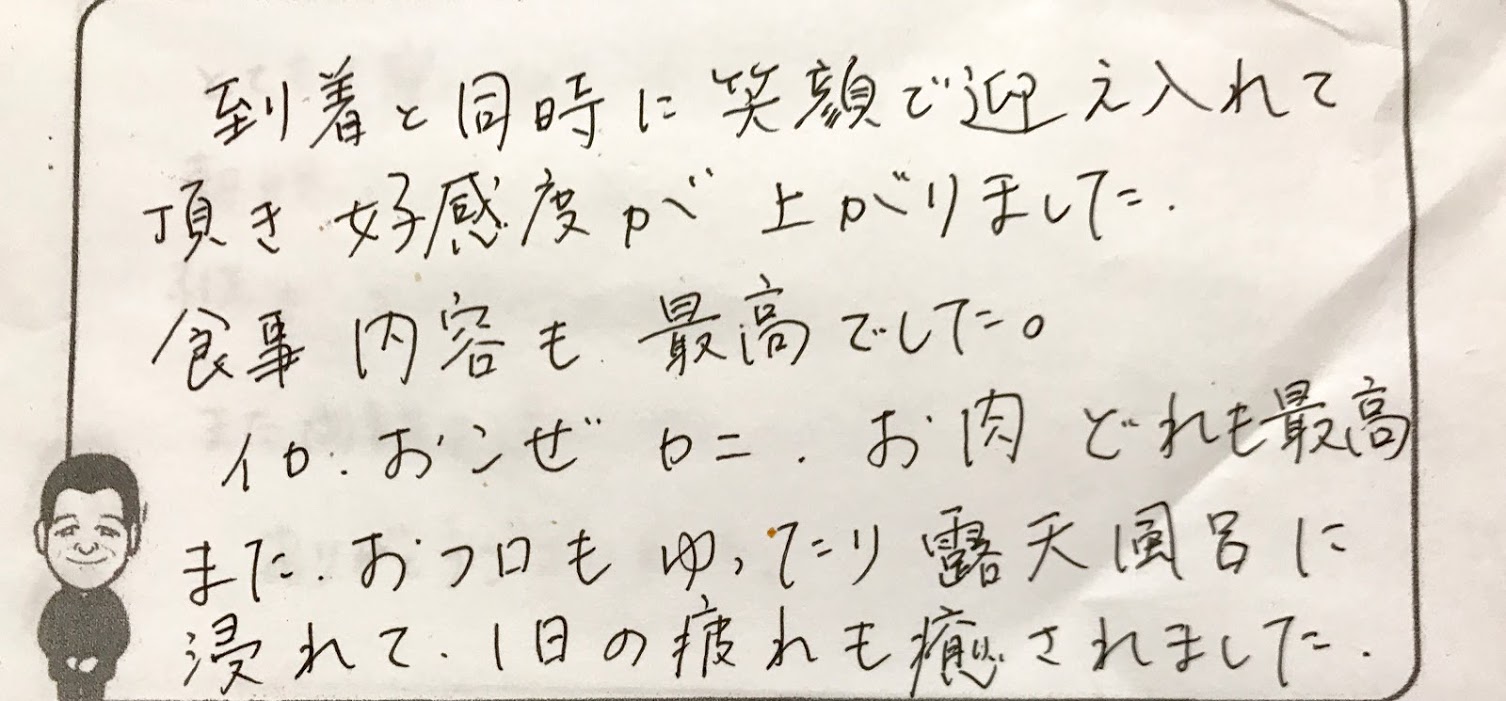 到着と同時に笑顔で迎え入れて
頂き好感度が上がりました.
食事内容も最高でした。
イカ.おンぜ カニ.お肉 どれも最高
また.おフロもゆったり露天風呂に
浸れて.1日の疲れも癒されました.